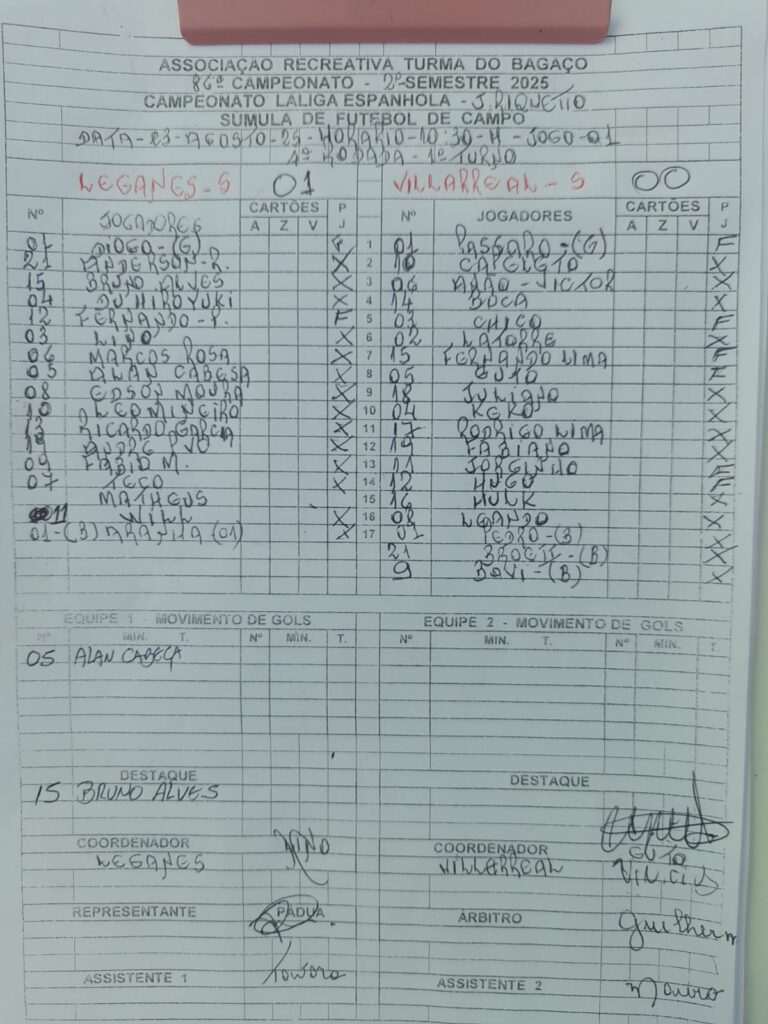 ASSOCIAÇÃO RECREATIVA TURMA DO BAGAÇO
86º CAMPEONATO - 2º SEMESTRE 2025
CAMPEONATO LALIGA ESPANHOLA - J. RIQUETTO
SUMULA DE FUTEBOL DE CAMPO
DATA - 23 - AGOSTO - 25 - HORARIO - 10:30 - H - JOGO - 01
4ª RODADA - 1º TURNO
LEGANES - S 01 VILLARREAL - S 00
Nº JOGADORES CARTÕES P Nº JOGADORES CARTÕES P
A Z V J A Z V J
01 DIOGO - (G) F 1 01 PASSARO - (G) F
21 ANDERSON - R. X 2 10 CAPELETO X
15 BRUNO ALVES X 3 06 ADÃO - VICTOR X
04 X 4 14 BOCA X
12 FERNANDO - P. F 5 03 CHICO F
03 LINO X 6 02 LATORRE X
06 MARCOS ROSA X 7 15 FERNANDO LIMA F
05 ALAN CABESA X 8 05 GUTO F
08 EDSON MOURA X 9 18 JULIANO X
10 LEO MINEIRO X 10 04 KEKO X
13 RICARDO GARCIA X 11 17 RODRIGO LIMA X
19 ANDRE X 12 19 FABIANO X
09 FABIO M. X 13 11 JORGINHO F
07 TECO X 14 12 HUGO F
MATHEUS 15 16 HULK X
11 WILL X 16 08 LEGANDO X
01 - (B) ARANHA (01) X 17 01 PEDRO - (B) X
21 BROETI - (B) X
9 BOVI - (B) X
EQUIPE 1 - MOVIMENTO DE GOLS EQUIPE 2 - MOVIMENTO DE GOLS
Nº MIN. T. Nº MIN. T. Nº MIN. T. Nº MIN. T.
05 ALAN CABEÇA
DESTAQUE DESTAQUE
15 BRUNO ALVES
COORDENADOR NINO COORDENADOR GUTO
LEGANES VILLARREAL VINICIUS
REPRESENTANTE PADUA ÁRBITRO Guilherm
ASSISTENTE 1 ASSISTENTE 2 Mauro